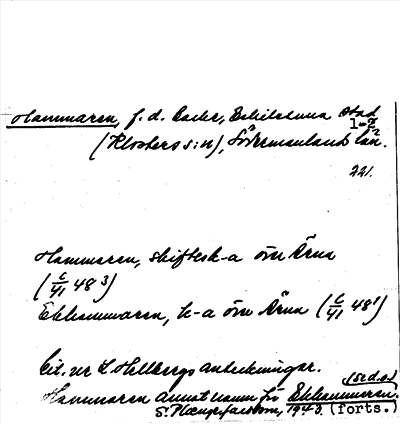 Hammaren, f.d. backe, Eskilstuna stad
1-2
(Klosters s:n), Södermanlands län.
221.
Hammaren, skiftesk-a över Ärna
(C/41 48 3)
Ekhammaren, k-a över Ärna (C/41 48 1)
Cit. ur L Hellbergs anteckningar.
Hammaren annat namn för Ekhammaren. (se d.o.)
S. 1943. (forts.)